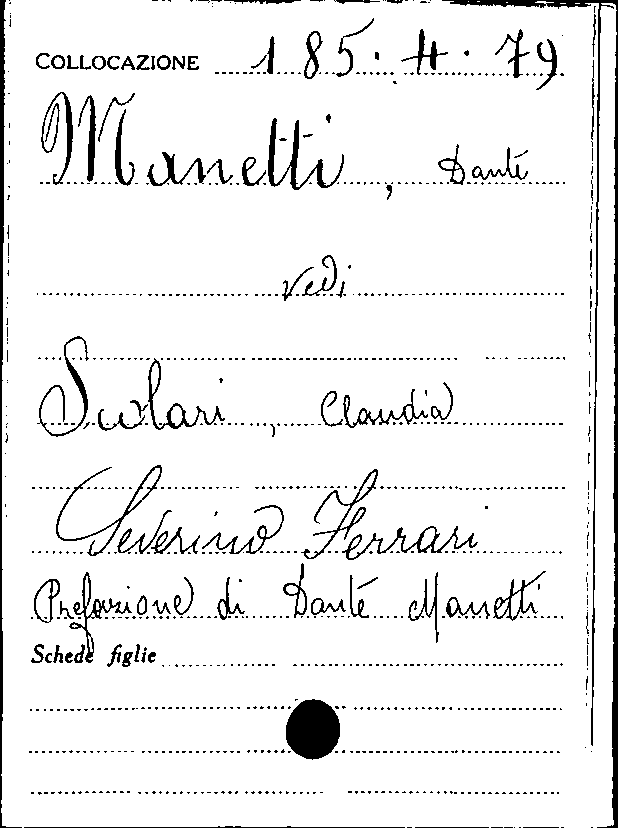 COLLOCAZIONE 185. H. 79
Manetti, Dante
Vedi
Scolari, Claudia
Severino Ferrari
Prefazione di Dante Manetti
Schede figlie